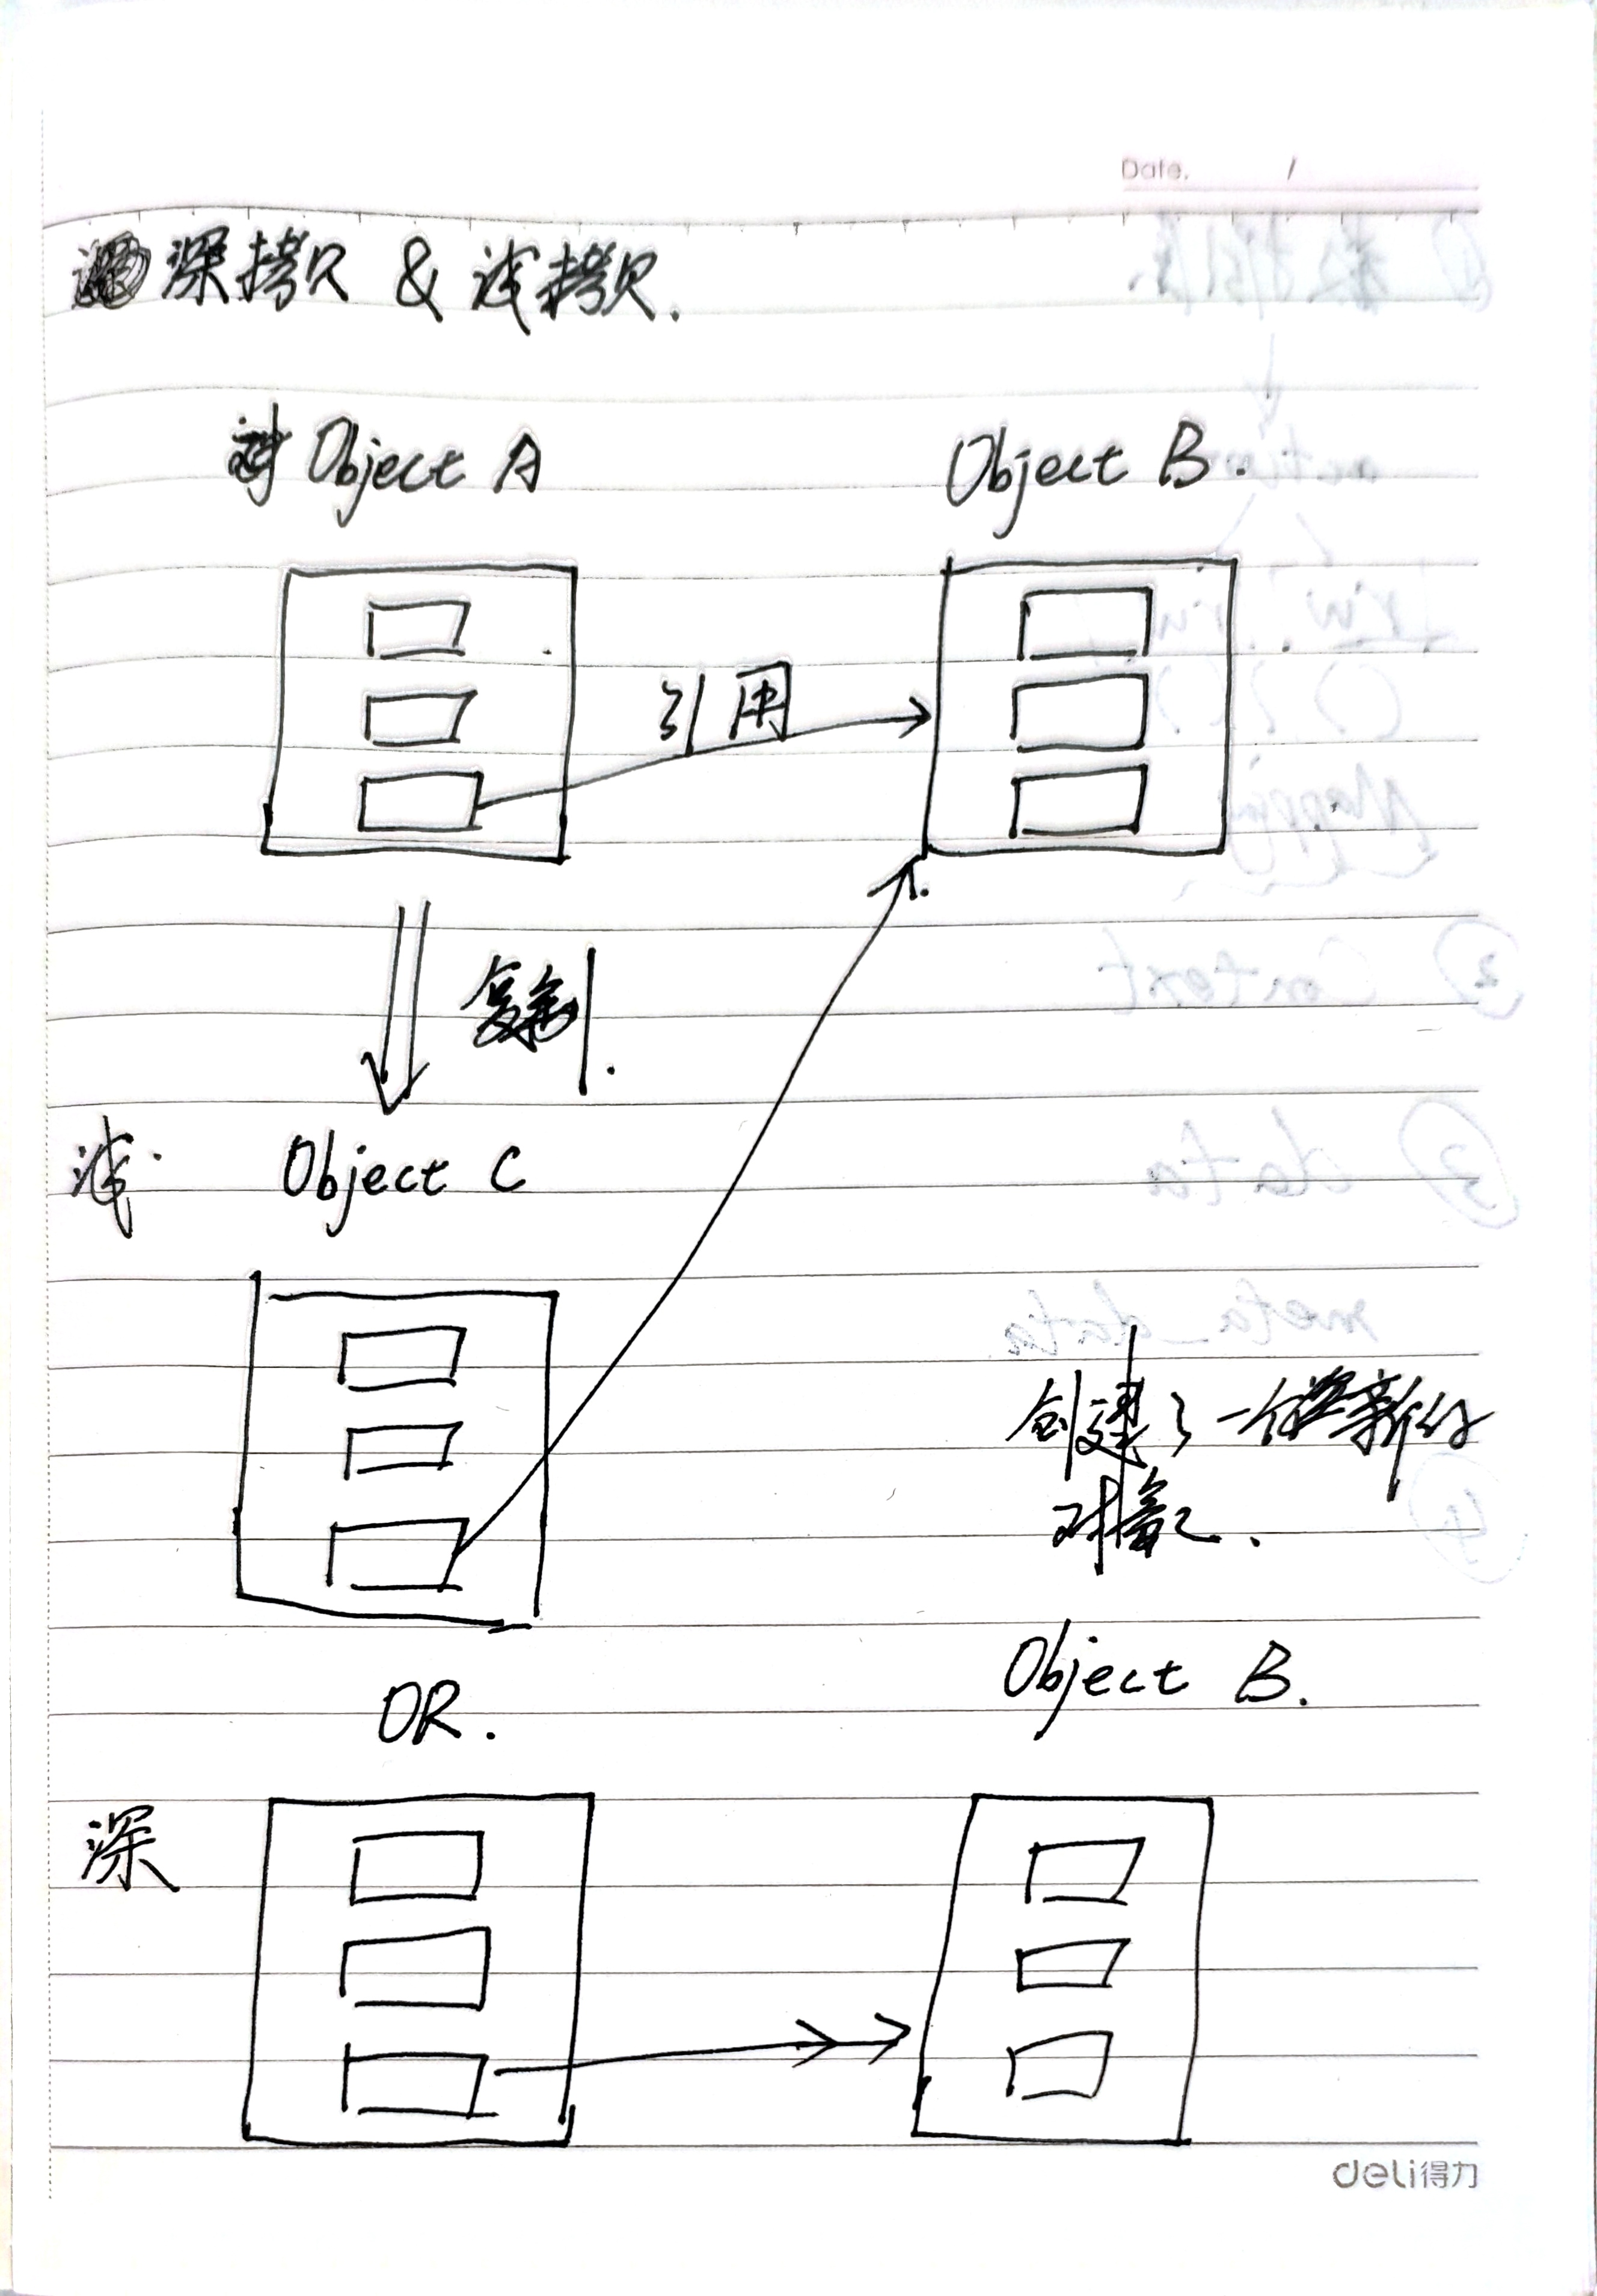 Date. /
深拷贝 & 浅拷贝.
Object A
Object B.
引用
复制.
浅.
Object C
创建了一个新的
对象.
Object B.
OR.
深
deli得力